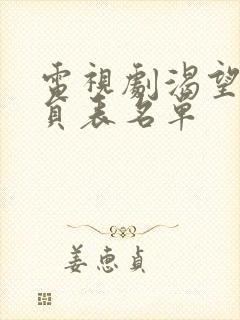 電視劇渴望
員表名單
姜惠貞